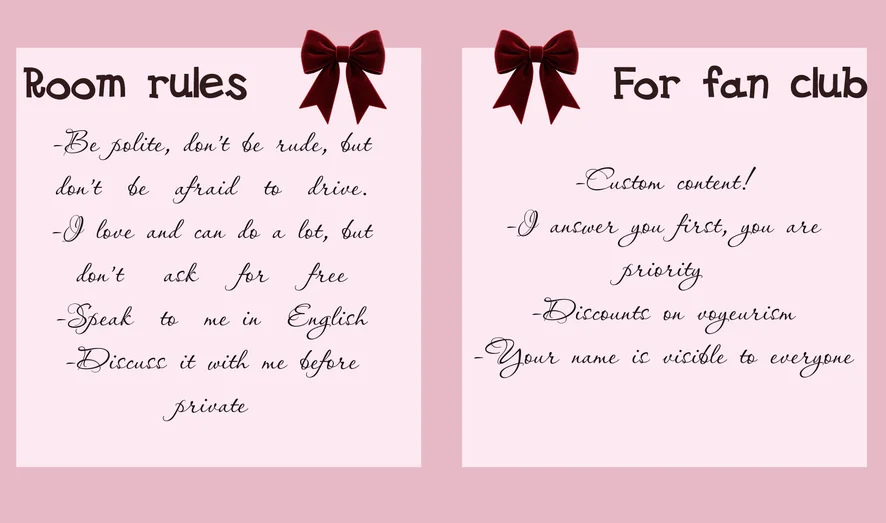 Room rules
-Be polite, don't be rude, but
don't be afraid to drive.
-I love and can do a lot, but
don't ask for free
-Speak to me in English
-Discuss it with me before
private
For fan club
-Custom content!
-I answer you first, you are
priority
-Discounts on voyeurism
-Your name is visible to everyone